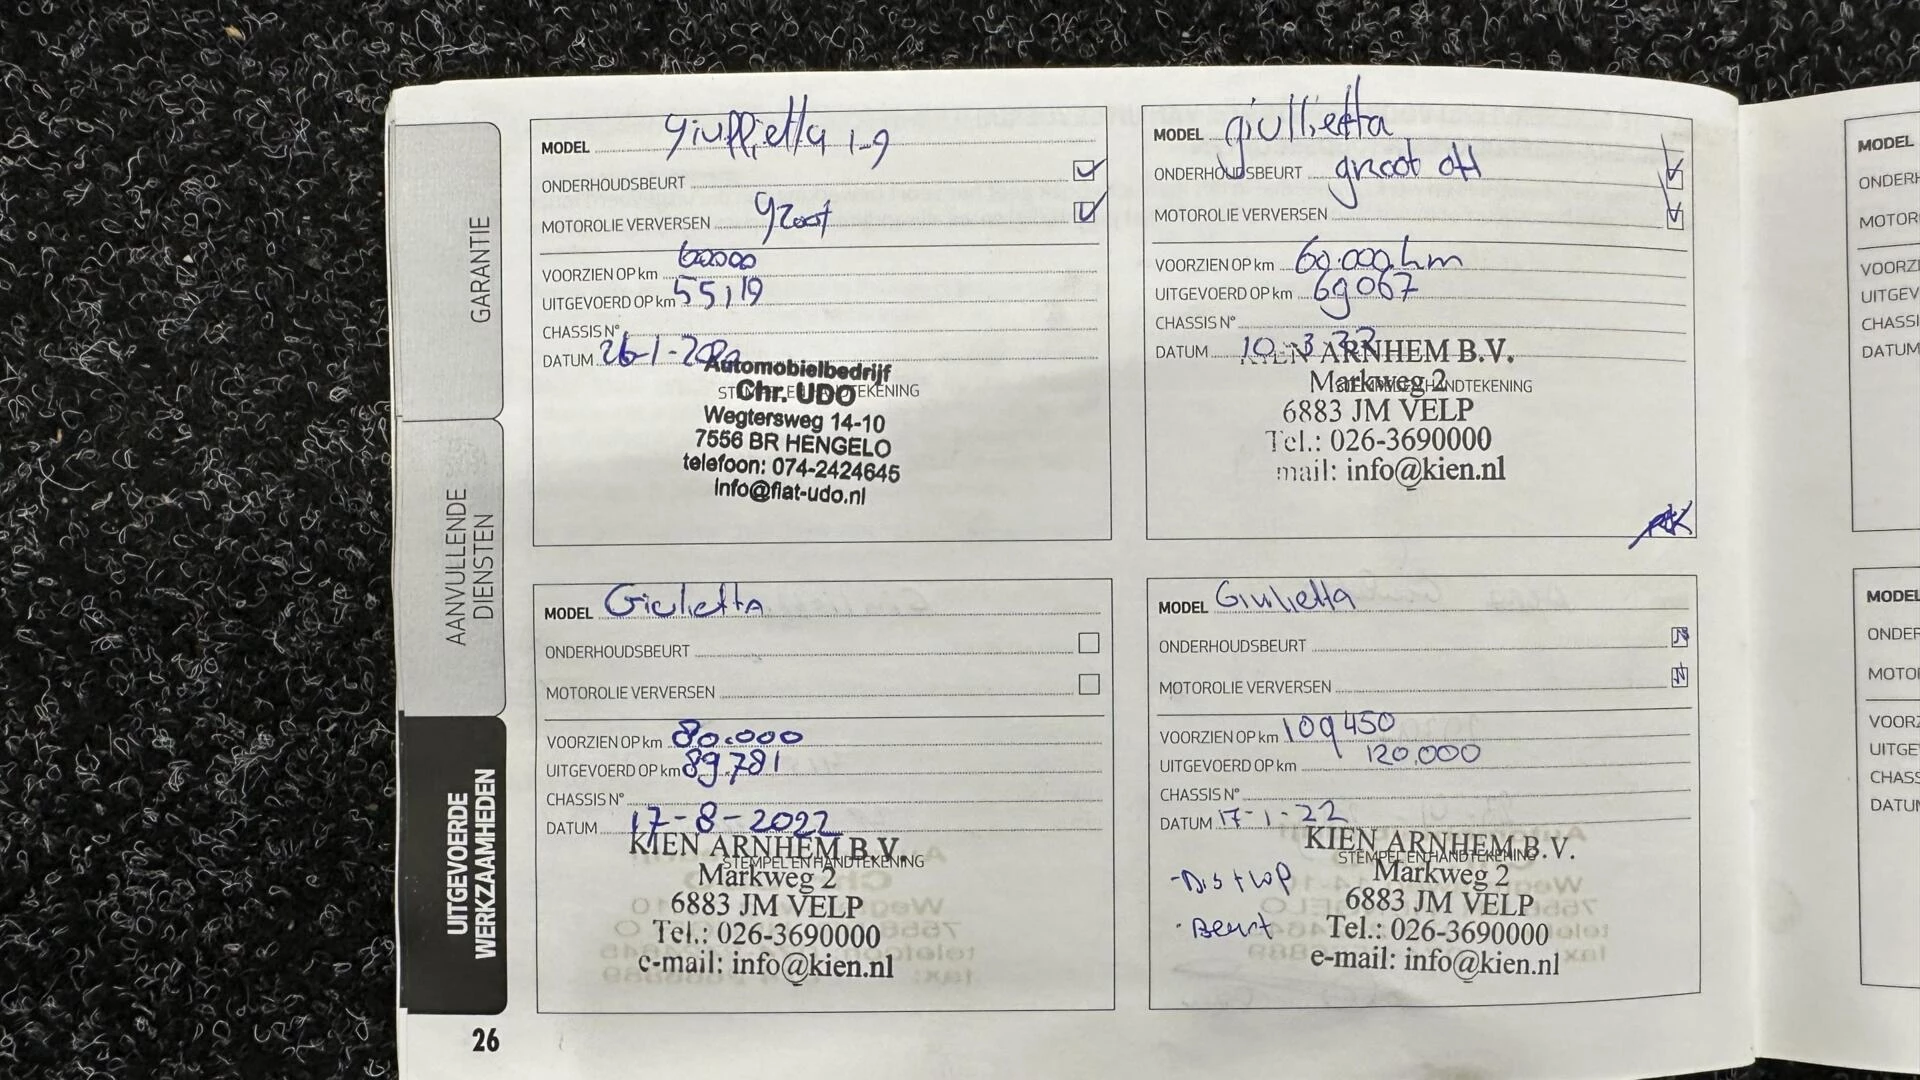 GARANTIE
AANVULLENDE
DIENSTEN
UITGEVOERDE
WERKZAAMHEDEN
MODEL giullietta 1-9
ONDERHOUDSBEURT
MOTOROLIE VERVERSEN groot
VOORZIEN OP km 60000
UITGEVOERD OP km 55119
CHASSIS N°
DATUM 26-1-202
Automobielbedrijf
STEMPEL EN HANDTEKENING
Chr. UDO
Wegtersweg 14-10
7556 BR HENGELO
telefoon: 074-2424645
info@fiat-udo.nl
MODEL giullietta
ONDERHOUDSBEURT groot oh
MOTOROLIE VERVERSEN
VOORZIEN OP km 60.000 km
UITGEVOERD OP km 69067
CHASSIS N°
DATUM 10-3-22
KIEN ARNHEM B.V.
STEMPEL EN HANDTEKENING
Markweg 2
6883 JM VELP
Tel.: 026-3690000
mail: info@kien.nl
MODEL Giulietta
ONDERHOUDSBEURT
MOTOROLIE VERVERSEN
VOORZIEN OP km 80.000
UITGEVOERD OP km 89.781
CHASSIS N°
DATUM 17-8-2022
KIEN ARNHEM B.V.
STEMPEL EN HANDTEKENING
Markweg 2
6883 JM VELP
Tel.: 026-3690000
e-mail: info@kien.nl
MODEL Giulietta
ONDERHOUDSBEURT
MOTOROLIE VERVERSEN
VOORZIEN OP km 109450
UITGEVOERD OP km 120.000
CHASSIS N°
DATUM 17-1-22
KIEN ARNHEM B.V.
STEMPEL EN HANDTEKENING
Markweg 2
6883 JM VELP
Tel.: 026-3690000
e-mail: info@kien.nl
- Beurt
26
MODEL
ONDERH
MOTOR
VOORZI
UITGEV
CHASSI
DATUM
MODEL
ONDER
MOTO
VOORZ
UITGE
CHASS
DATU